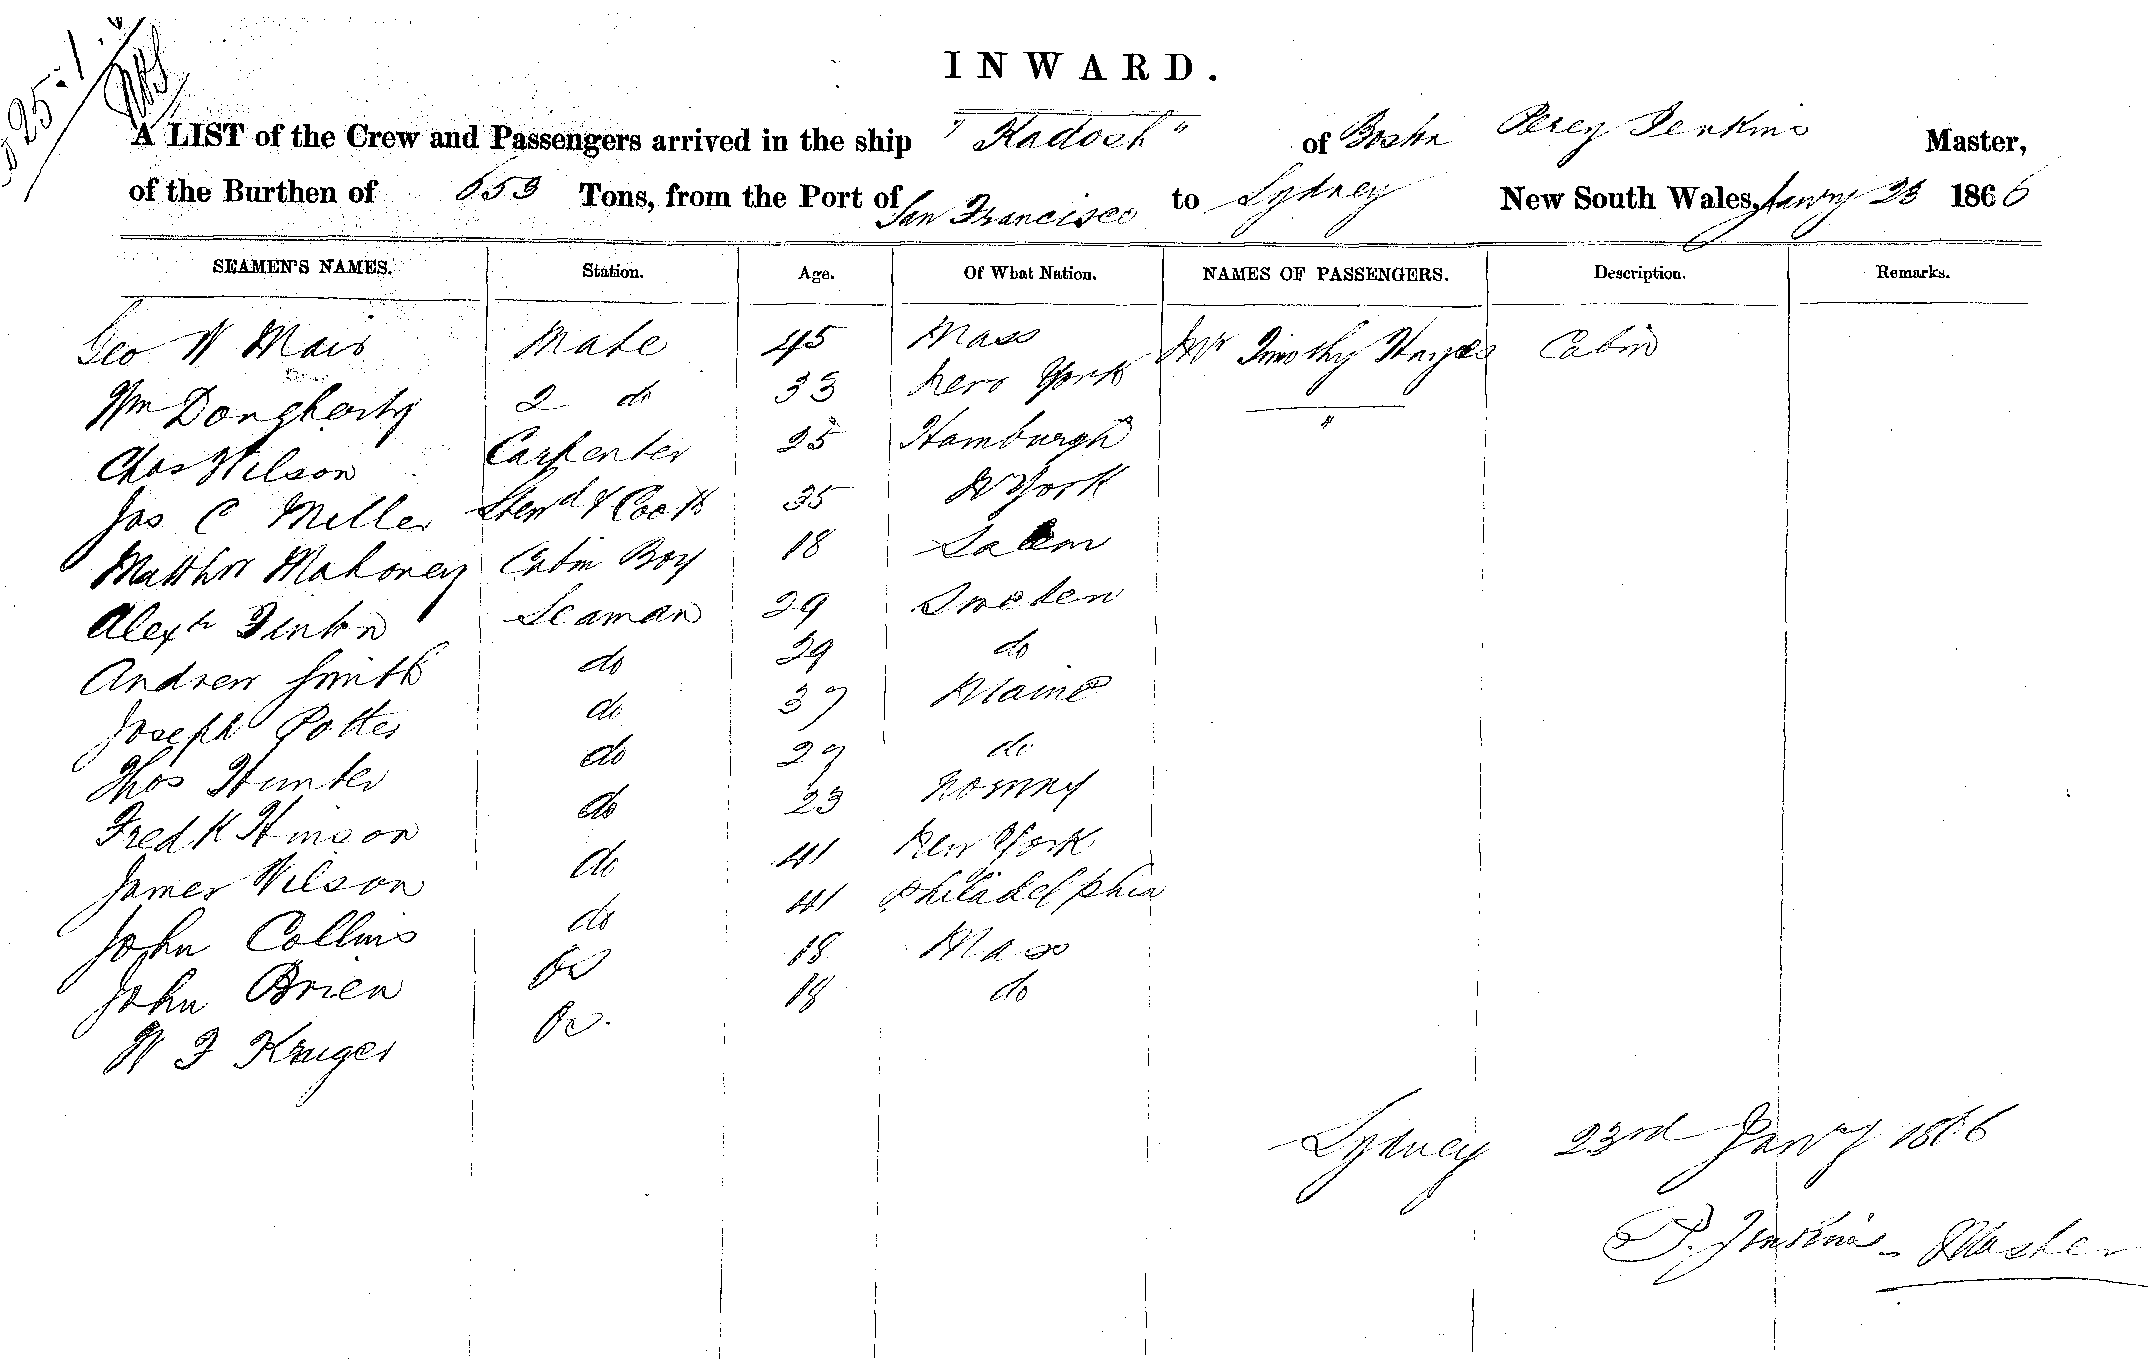 25.1.6
INWARD.
A LIST of the Crew and Passengers arrived in the ship "Kadosh" of Boston Percy Jenkins Master,
of the Burthen of 653 Tons, from the Port of San Francisco to Sydney New South Wales, Janry 23 1866
SEAMEN'S NAMES. Station. Age. Of What Nation. NAMES OF PASSENGERS. Description. Remarks.
Geo W Mair Mate 45 Mass Mr Timothy Hayes Cabin
Wm Dougherty 2 do 33 New York "
Chas Wilson Carpenter 25 Hamburgh
Jas C Miller Stewd & Cook 35 N York
Matthw Mahoney Cabin Boy 18 Salem
Alexr Finton Seaman 29 Sweden
Andrew Smith do 29 do
Joseph Potter do 37 Maine
Thos Hunter do 27 do
Fredk Hinson do 23 Norway
James Wilson do 41 New York
John Collins do 41 Philadelphia
John Brien Do 18 Mass
W F Kruger Do. 18 do
Sydney 23rd Janry 1866
P. Jenkins - Master